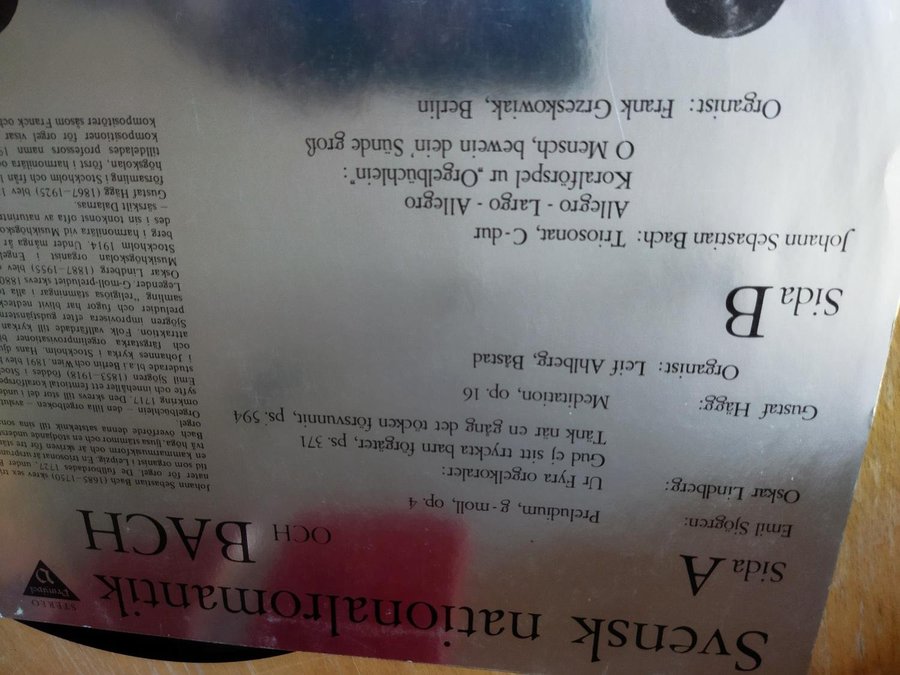 STEREO
Prinsipal
Svensk nationalromantik
OCH BACH
Sida A
Emil Sjögren: Preludium, g-moll, op. 4
Oskar Lindberg: Ur Fyra orgelkoraler:
Gud ej sitt tryckta barn förgäter, ps. 371
Tänk när en gång det töcken försvunnit, ps. 594
Gustaf Hägg: Meditation, op. 16
Organist: Leif Ahlberg, Båstad
Sida B
Johann Sebastian Bach: Triosonat, C-dur
Allegro - Largo - Allegro
Koralförspel ur „Orgelbüchlein”:
O Mensch, bewein dein' Sünde groß
Organist: Frank Grzeskowiak, Berlin
Johann Sebastian Bach (1685–1750) skrev sex
nater för orgel. De fullbordades 1727. Under
tid som organist i Leipzig. En triosonat är
en kammarmusikform och är skriven för tre
två höga, ljusa stämmor och en stödjande
Bach överförde denna satsteknik till sina
orgel.
Orgelbüchlein – den lilla orgelboken –
omkring 1717. Den skrevs till stor del i
syfte och innehåller ett femtiotal
Emil Sjögren (1853–1918) föddes i
studerade bl a i Berlin och Wien. 1891 blev
i Johannes kyrka i Stockholm. Hans
och färgstarka orgelimprovisationer
attraktion. Folk vallfärdade till kyrkan
Sjögren improvisera efter
preludier och fugor har blivit
samling ”religiösa stämningar i alla
Legender. G-mollpreludiet skrevs
Oskar Lindberg (1887–1955) blev
Musikhögskolan organist i
Stockholm 1914. Under många år
berg i harmonilära vid
des i sin tonkonst ofta av
– särskilt Dalarnas.
Gustaf Hägg (1867–1925) blev
församling i Stockholm och från
högskolan, först i harmonilära
tilldelades professors namn
kompositioner för orgel visar
kompositörer såsom Franck och